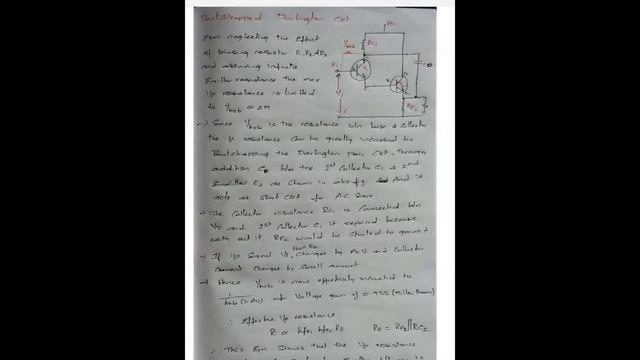 Bootstrapped Darlington Ckt
Even neglecting the effect
of biasing resistor R1, R2 & R3
and assuming infinite
Emitter resistance the max
i/p resistance is limited
to 1/hob ≃ 2M
→ Since 1/hob is the resistance b/n base & Collector
the i/p resistance can be greatly increased by
Bootstrapping the Darlington pair Ckt, through
addition Co b/n the 1st Collector C1 & 2nd
Emitter E2 as shown in above fig. And it
acts as short Ckt for A.C
→ The Collector resistance Rc1 is connected b/n
Vcc and 1st Collector C1 it required because
with out it, RE2 would be shorted to ground
→ If i/p signal Vi, changes by and Collector
Current changes by small amount
→ Hence 1/hob is now effectively increased to
1/hob(1-Av) of Voltage gain of 0.995 (Miller theorem)
∴ Effective i/p resistance
Ri ≃ hfe1 hfe2 Re Re = RE2 || Rc1
∴ This Eqn Shows that the i/p resistance